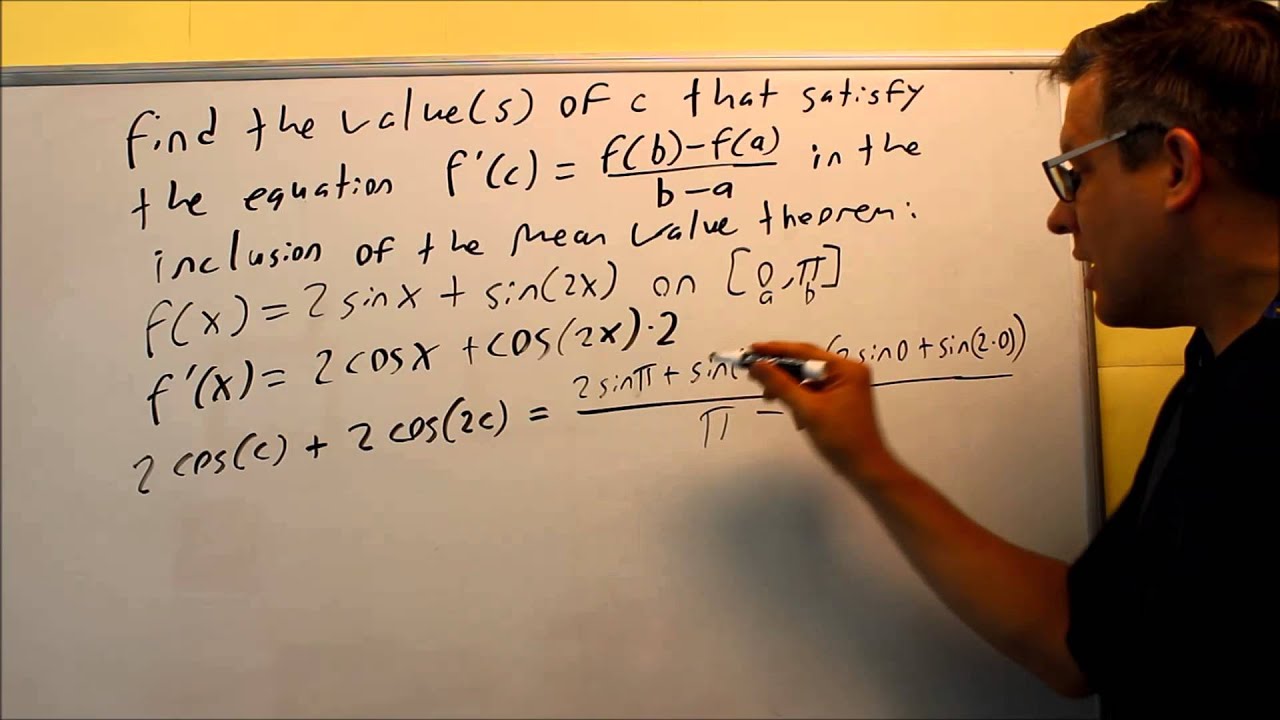 find the value(s) of c that satisfy
the equation f'(c) = f(b)-f(a) / b-a in the
inclusion of the mean value theorem:
f(x) = 2 sinx + sin(2x) on [0, π]
a b
f'(x) = 2 cosx + cos(2x)·2
2 cos(c) + 2 cos(2c) = 2 sinπ + sin( 2 sin0 + sin(2·0)) / π -